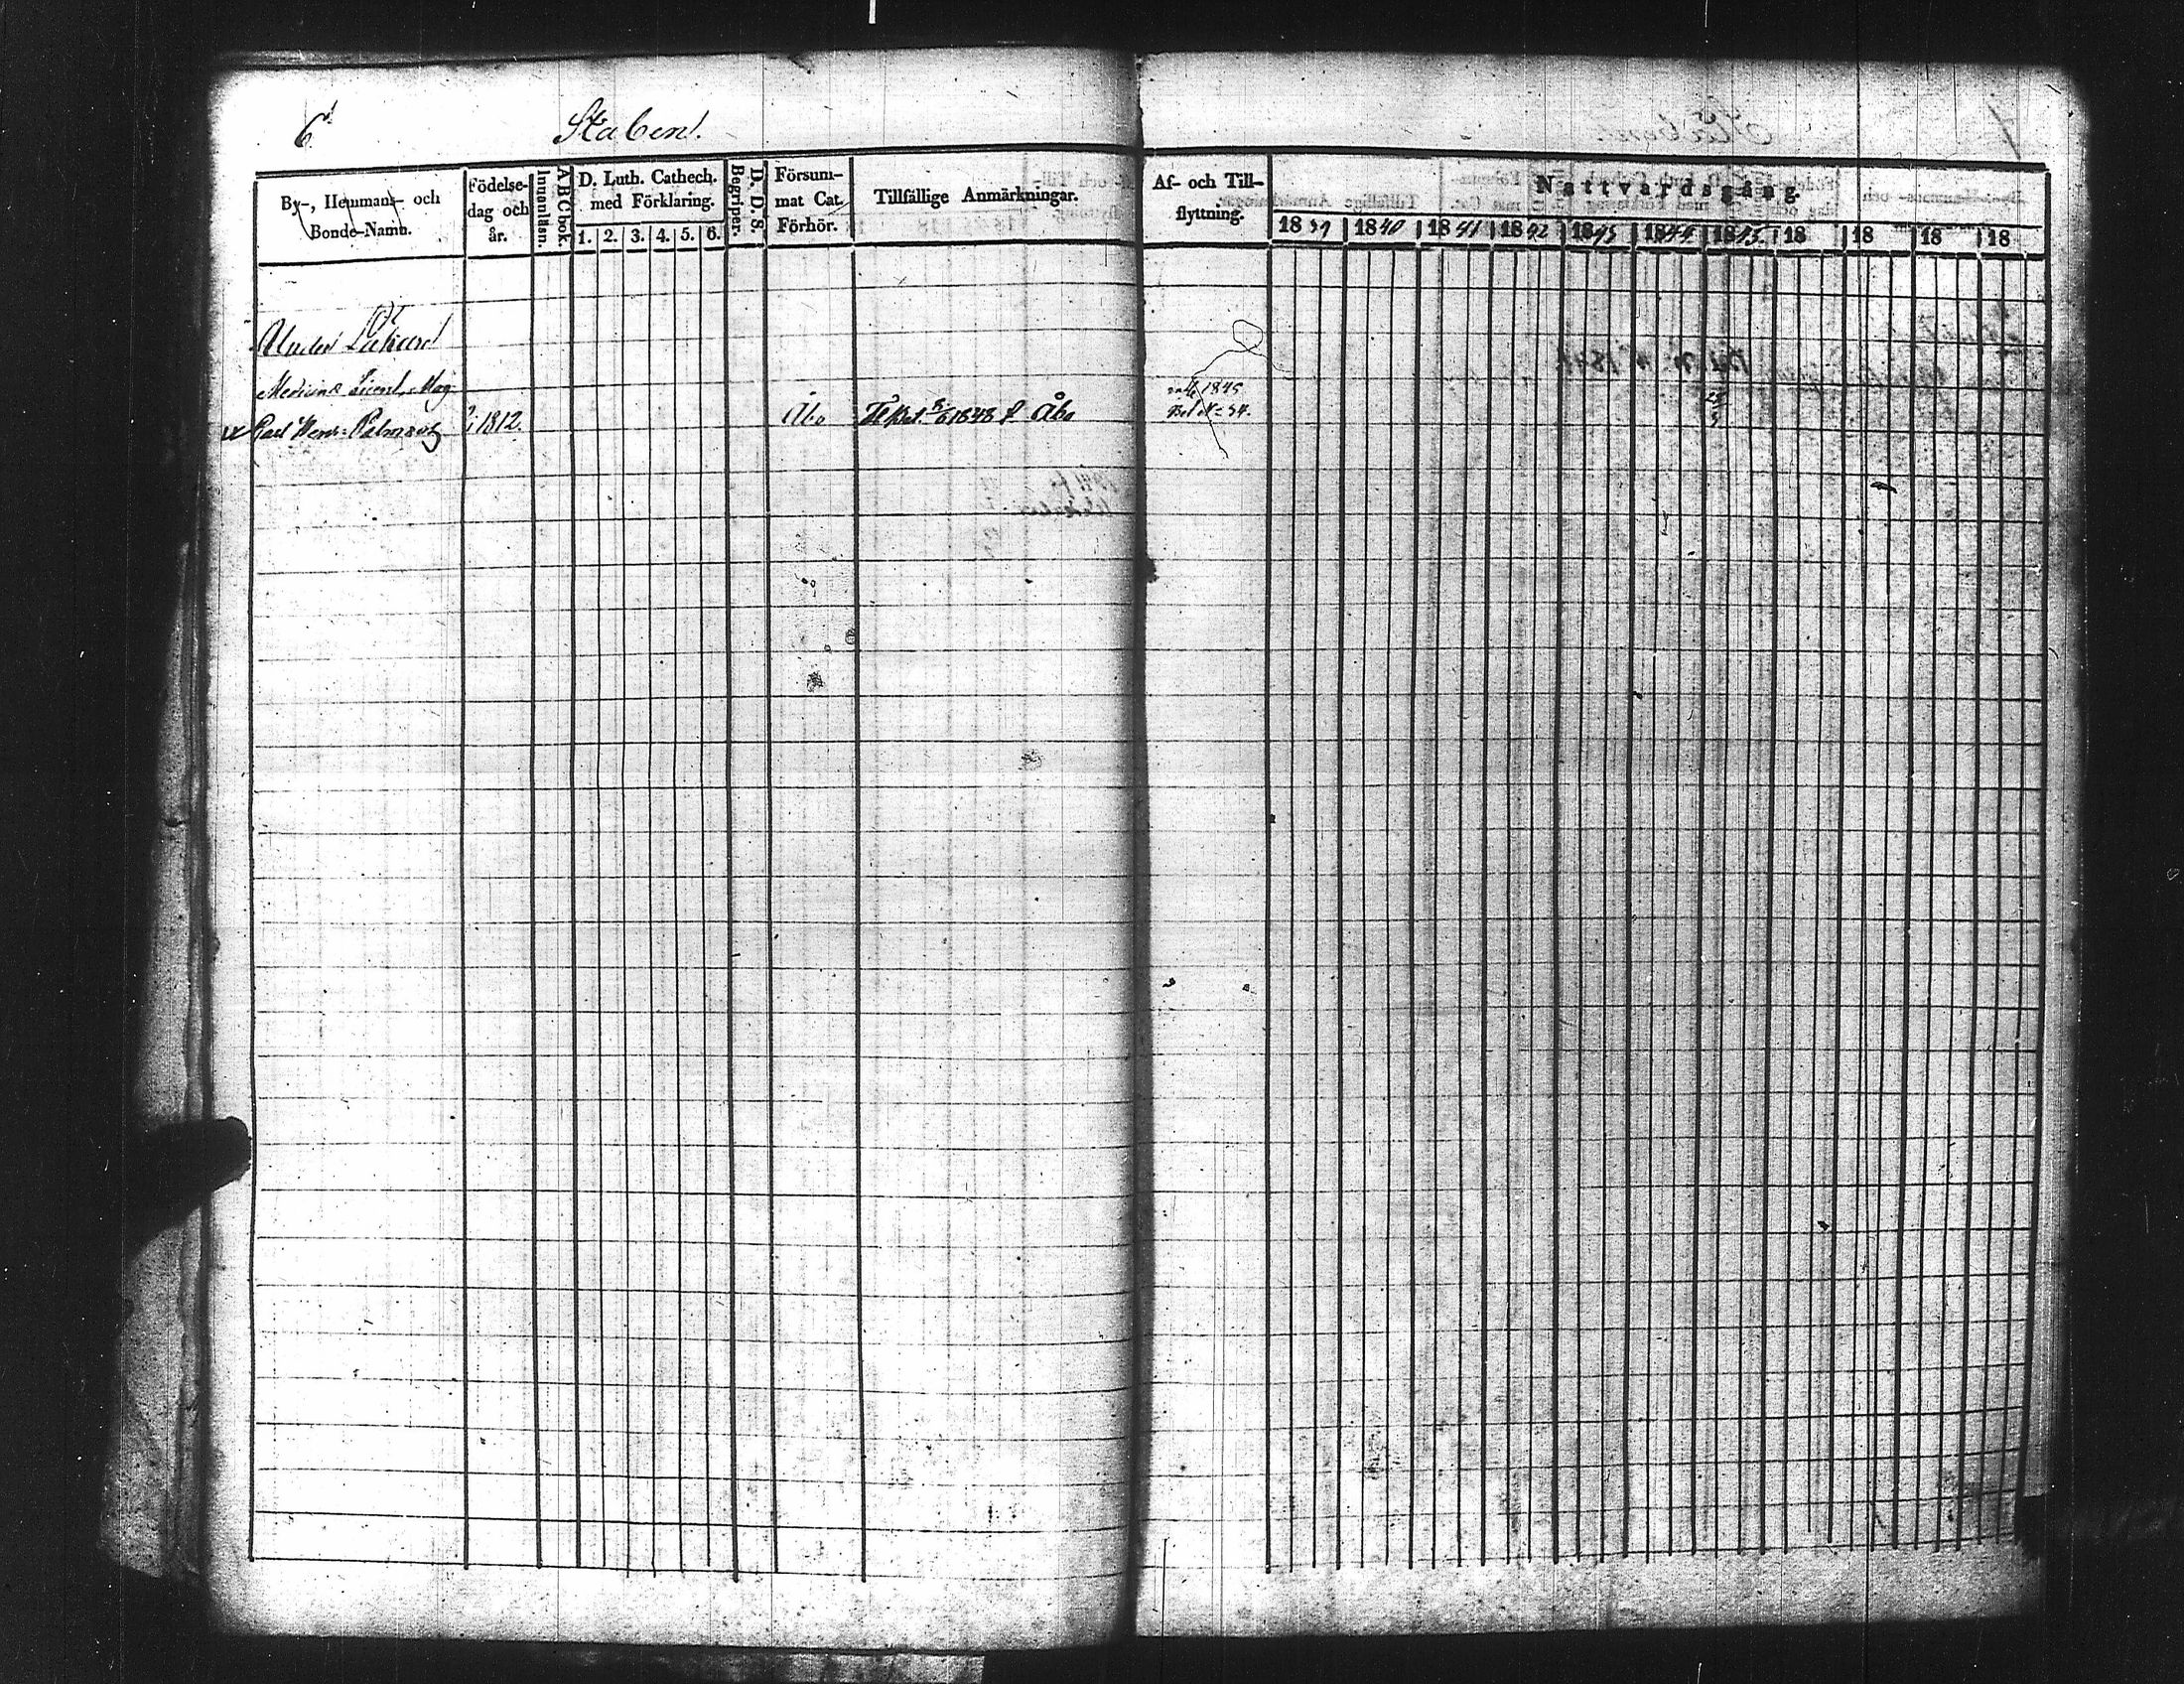 6
Staben.
By-, Hemmans- och Bonde-Namn.
Födelse-dag och år.
Innanläsn.
A B C bok.
D. Luth. Cathech. med Förklaring.
1. 2. 3. 4. 5. 6.
D. D. S. Begriper.
Försum-mat Cat. Förhör.
Tillfällige Anmärkningar.
Af- och Till-flyttning.
Nattvardsgång.
1839 1840 1841 1842 1843 1844 1845 18 18 18 18
Under Läkare
Medicinæ Licent. Mag
Carl Henr. Palmroth 1812. Åbo 1848 f. Åbo
1845
Bet N: 34.